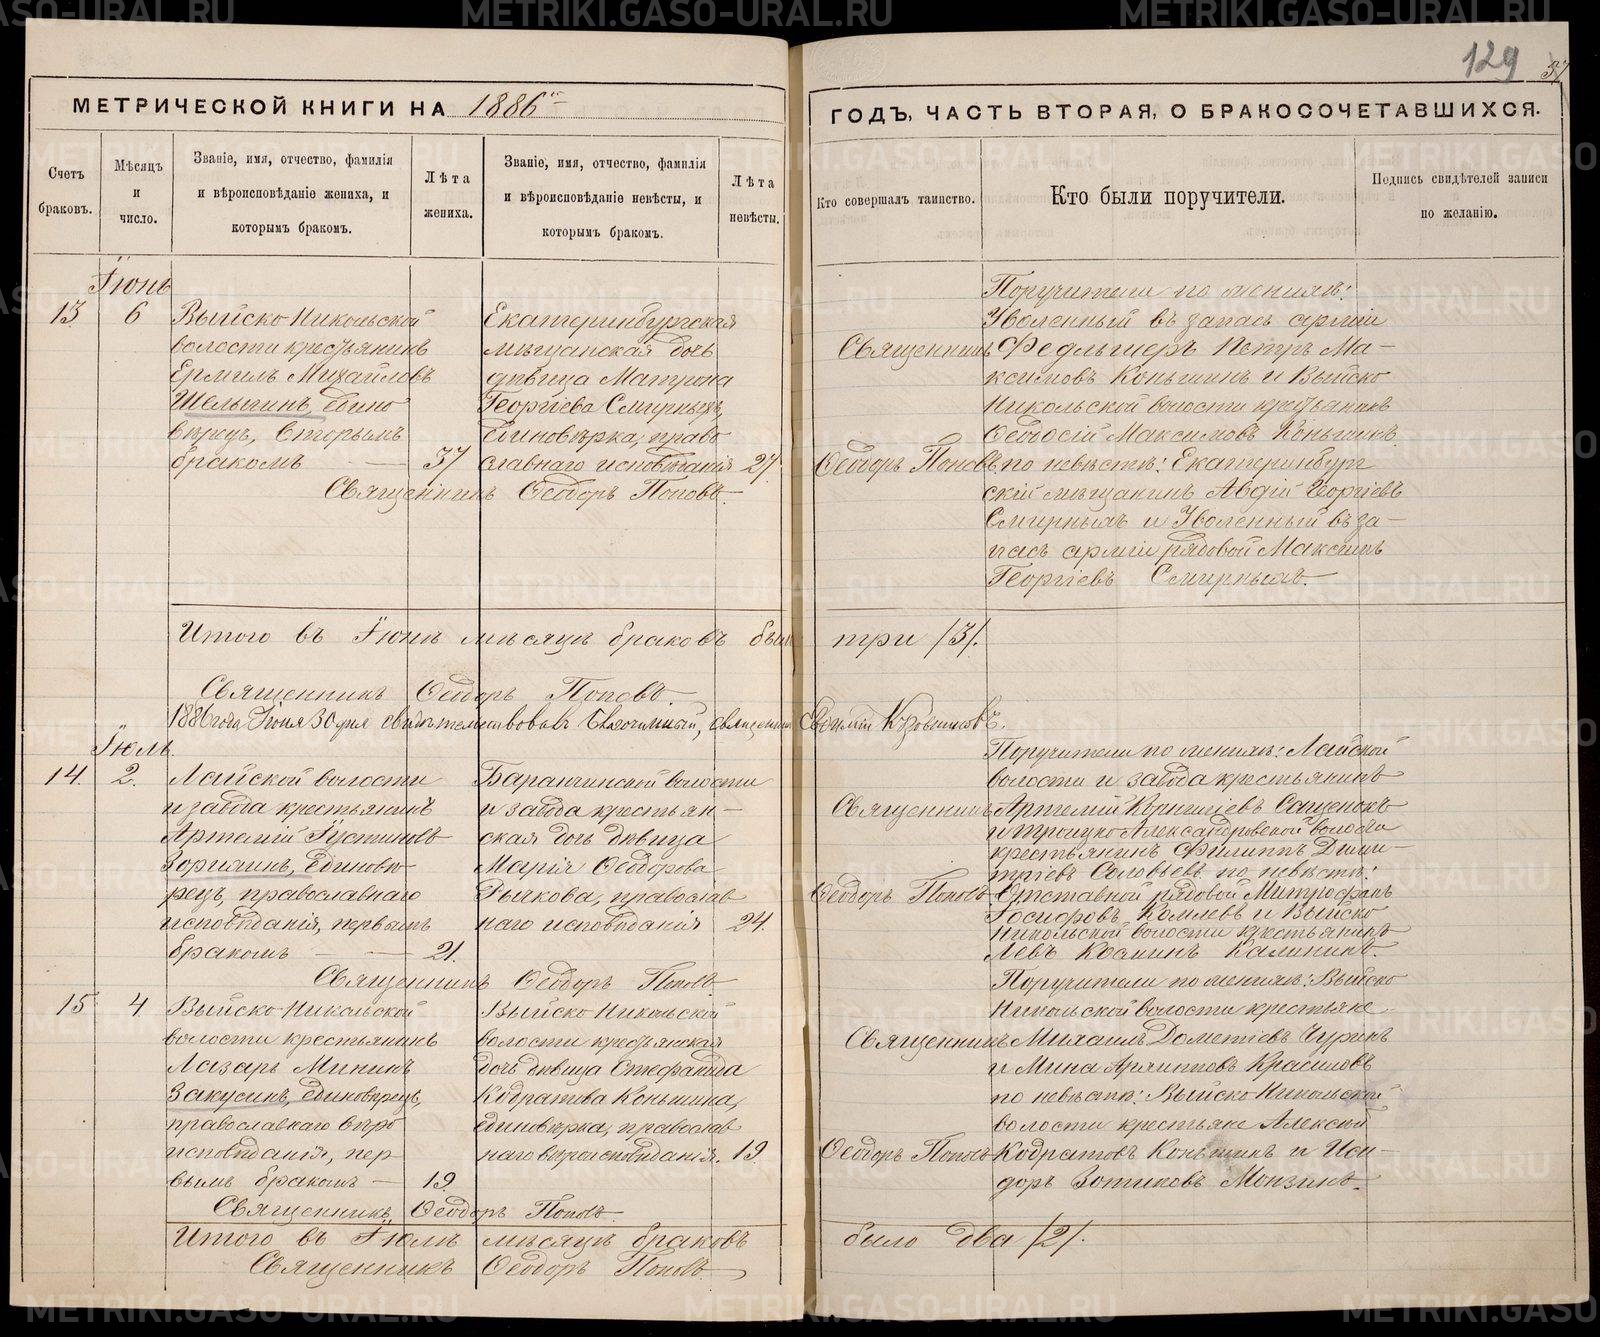 129 37
МЕТРИЧЕСКОЙ КНИГИ НА 1886й
ГОДЪ, ЧАСТЬ ВТОРАЯ, О БРАКОСОЧЕТАВШИХСЯ.
Счетъ
браковъ.
Мѣсяцъ
и
число.
Званіе, имя, отчество, фамилія
и вѣроисповѣданіе жениха, и
которымъ бракомъ.
Лѣта
жениха.
Званіе, имя, отчество, фамилія
и вѣроисповѣданіе невѣсты, и
которымъ бракомъ.
Лѣта
невѣсты.
Кто совершалъ таинство.
Кто были поручители.
Подпись свидѣтелей записи
по желанію.
Іюнь
13. 6
Выйско Никольской
волости крестьянинъ
Ермилъ Михайловъ
Шелыгинъ, едино
вѣрецъ, вторымъ
бракомъ — 37
Екатеринбургская
мѣщанская дочь
дѣвица Матрона
Георгіева Смирныхъ,
единовѣрка, право
славнаго исповѣданія 27.
Священникъ Ѳеодоръ Поповъ.
Священникъ
Ѳеодоръ Поповъ
Поручители по женихѣ:
Уволенный въ запасъ арміи
Федльшеръ Петръ Ма-
ксимовъ Коньшинъ и Выйско
Никольской волости крестьянинъ
Ѳеодосій Максимовъ Коньшинъ.
по невѣстѣ: Екатеринбург
скій мѣщанинъ Авдій Георгіевъ
Смирныхъ и Уволенный въ за-
пасъ арміи рядовой Максимъ
Георгіевъ Смирныхъ.
Итого въ Іюнѣ мѣсяцѣ браковъ было три /3/.
Священникъ Ѳеодоръ Поповъ.
1886 года Іюня 30 дня свидѣтельствовалъ Благочинный, священникъ
Іюль.
14. 2.
Лайской волости
и завода крестьянинъ
Артемій Іустиновъ
Зорихинъ, единовѣ
рецъ, православнаго
исповѣданія, первымъ
бракомъ — 21.
Баранчинской волости
и завода крестьян-
ская дочь дѣвица
Марія Ѳеодорова
Рычкова, православ
наго исповѣданія 24.
Священникъ Ѳеодоръ Поповъ
Священникъ
Ѳеодоръ Поповъ
Поручители по женихѣ: Лайской
волости и завода крестьянинъ
Артемій Корниліевъ
и Троицко Александровской волости
крестьянинъ Филиппъ Дими-
тріевъ Соловьевъ по невѣстѣ:
Отставной рядовой Митрофанъ
Іосифовъ Комлевъ и Выйско
Никольской волости крестьянинъ
Левъ Косминъ Калининъ.
15 4
Выйско Никольской
волости крестьянинъ
Лазарь Мининъ
Закусинъ, единовѣрецъ,
православнаго вѣро
исповѣданія, пер
вымъ бракомъ — 19.
Выйско Никольской
волости крестьянская
дочь дѣвица Стефанида
Кодратова Коньшина,
единовѣрка, православ
наго вѣроисповѣданія. 19.
Священникъ Ѳеодоръ Поповъ.
Священникъ
Ѳеодоръ Поповъ
Поручители по женихѣ: Выйско
Никольской волости крестьяне
Михаилъ Дометіевъ Чургинъ
и Мина Красиловъ
по невѣстѣ: Выйско Никольской
волости крестьяне Алексій
Кодратовъ Коньшинъ и Иси-
доръ Зотиковъ Монзинъ.
Итого въ Іюлѣ мѣсяцѣ браковъ было два /2/.
Священникъ Ѳеодоръ Поповъ.
METRIKI.GASO-URAL.RU